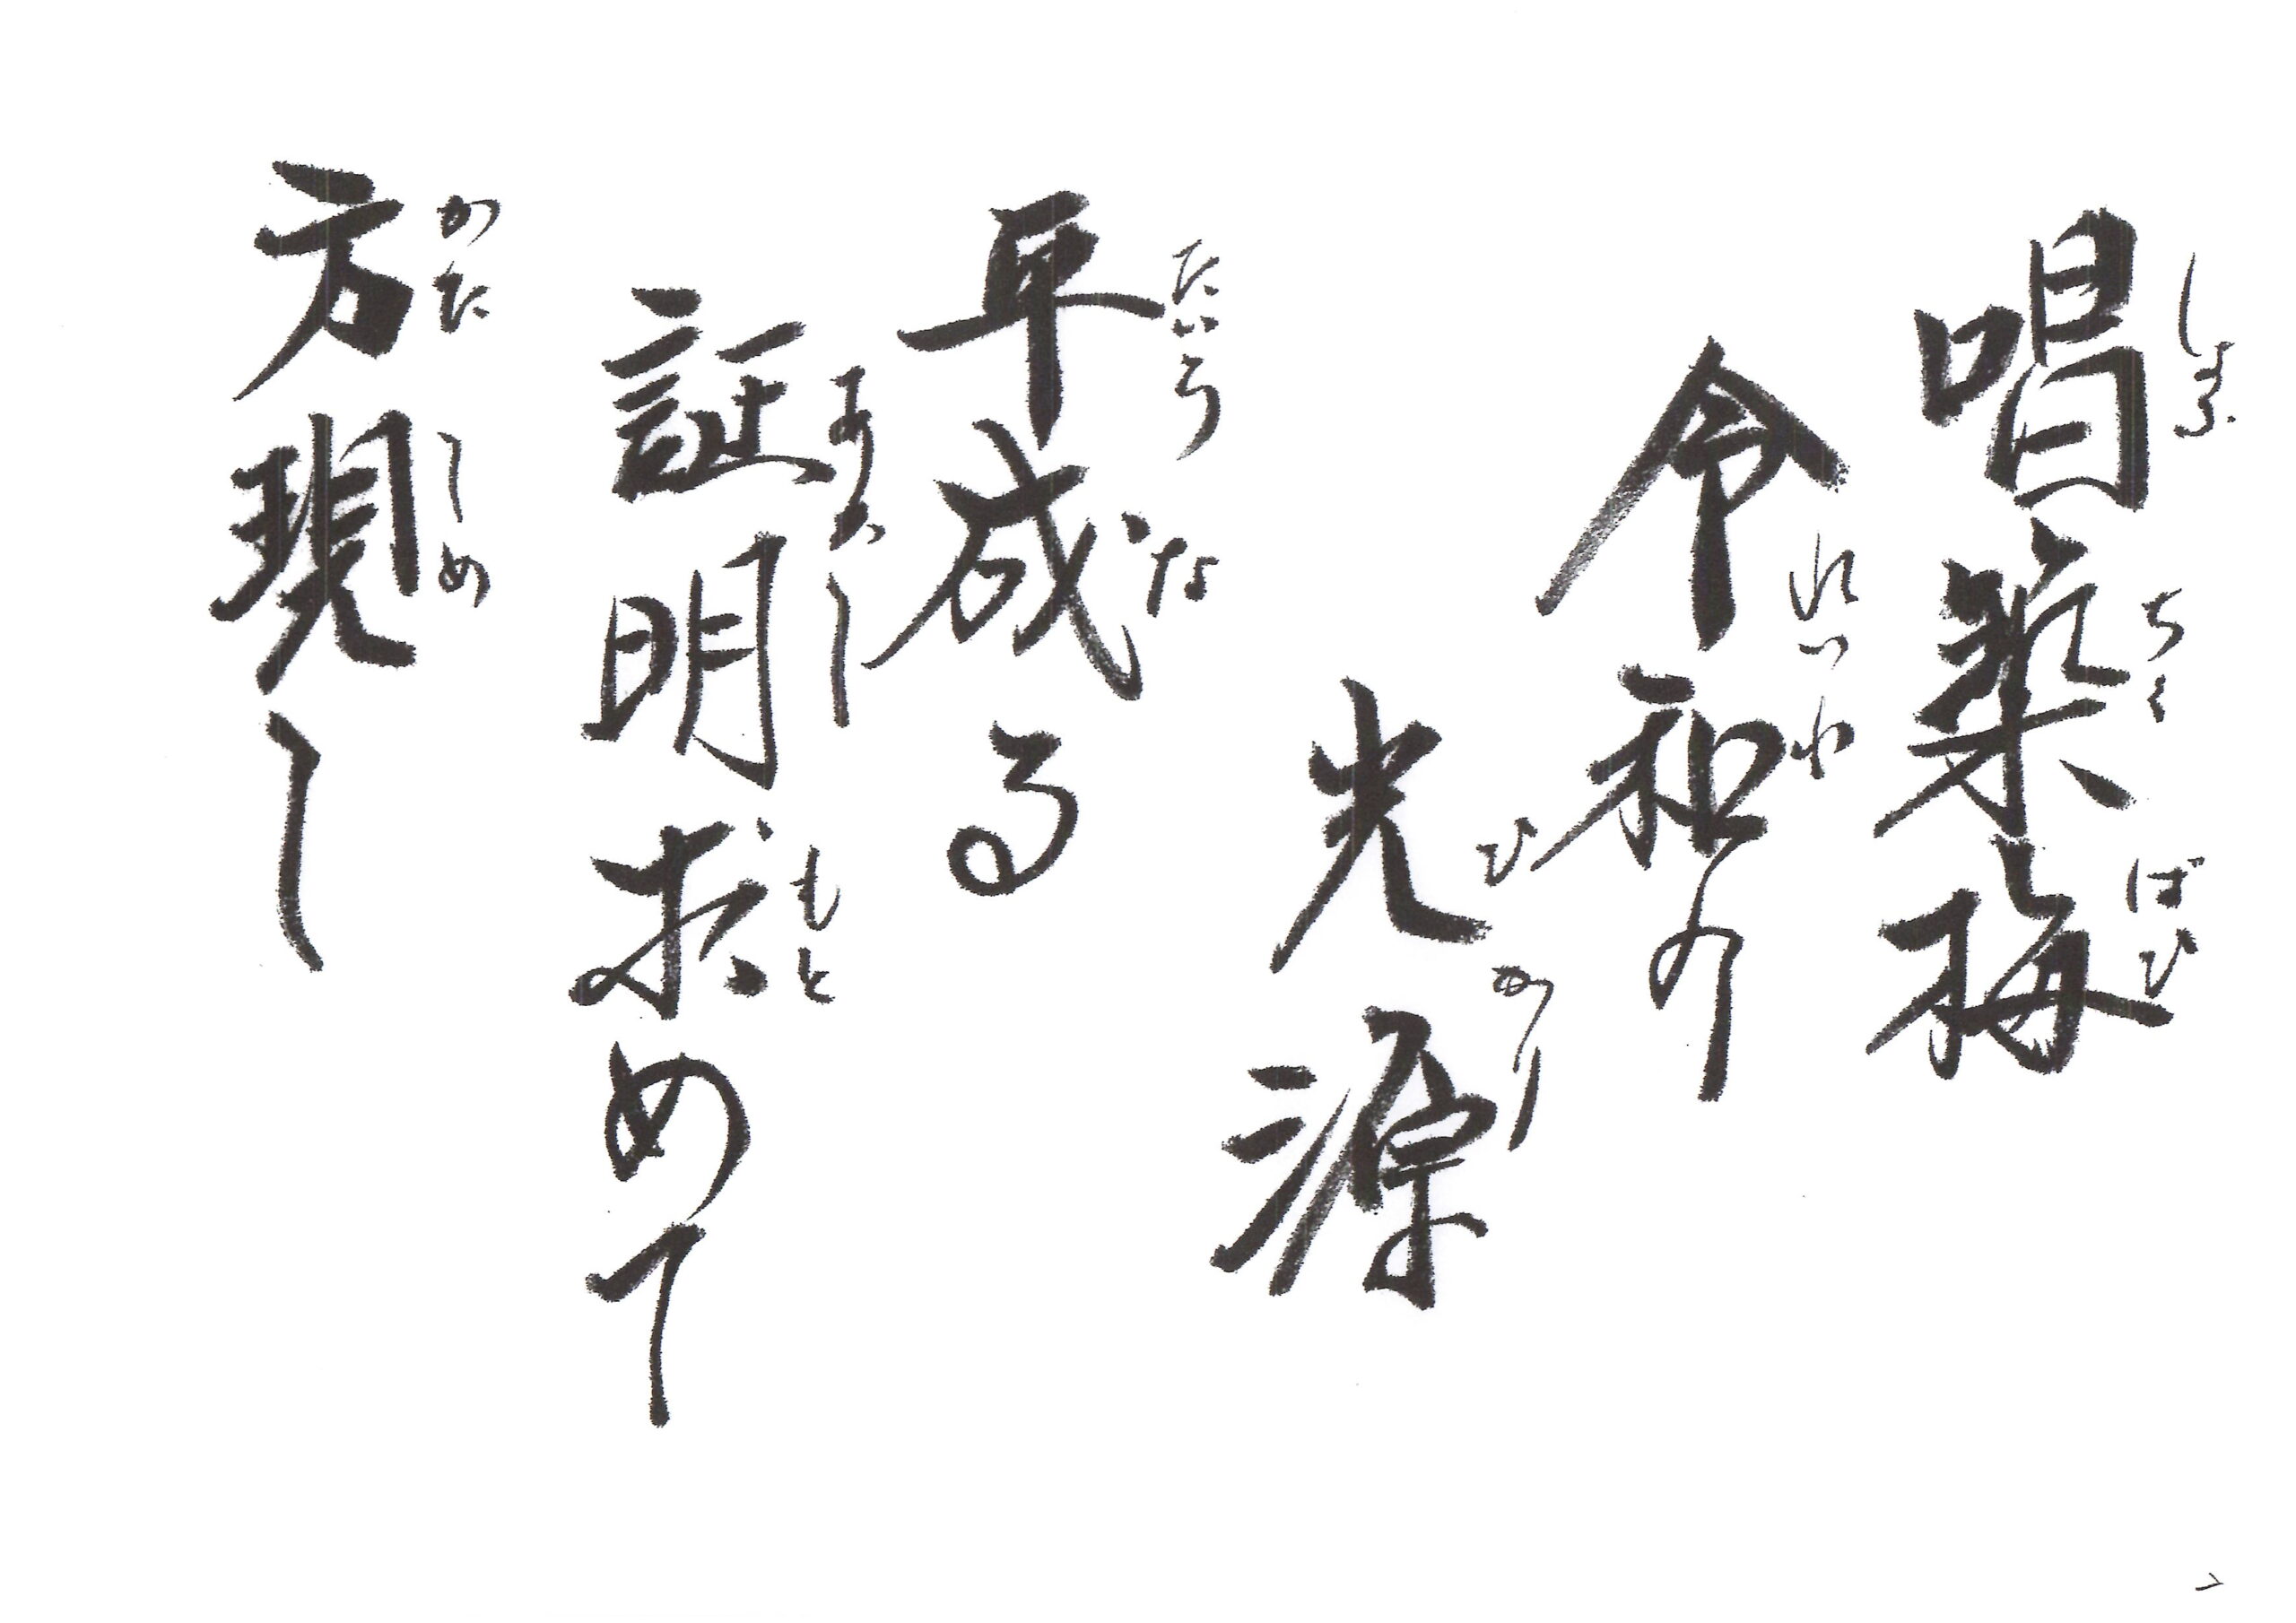 唱築梅
しょう ちく ばひ
令和の
れっ わ
光源
ひ かり
平成る
たいら な
証明求めて
あかし もと
方現し
かた しめ